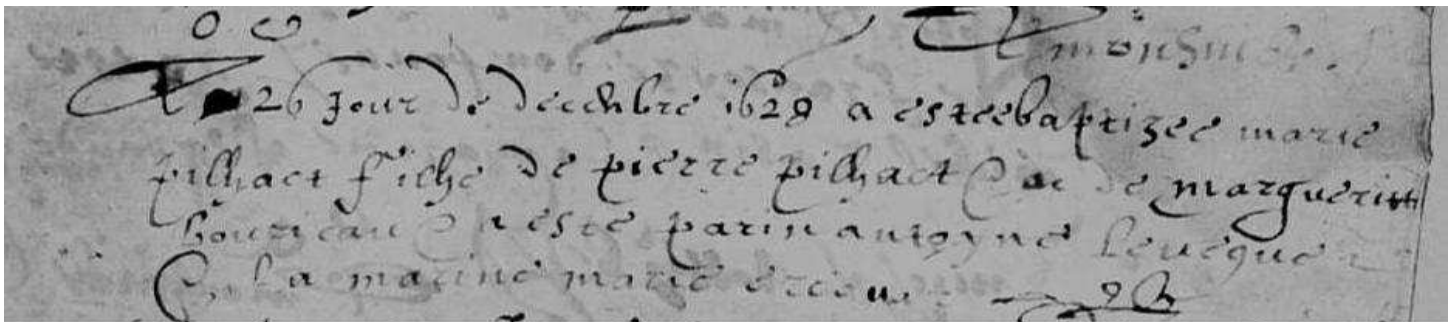 Le 26 Jour de decembre 1628 a estee baptizee marie
pilhact filhe de pierre pilhact & de marguerite
a este parin anthoyne leveque
& la marine marie